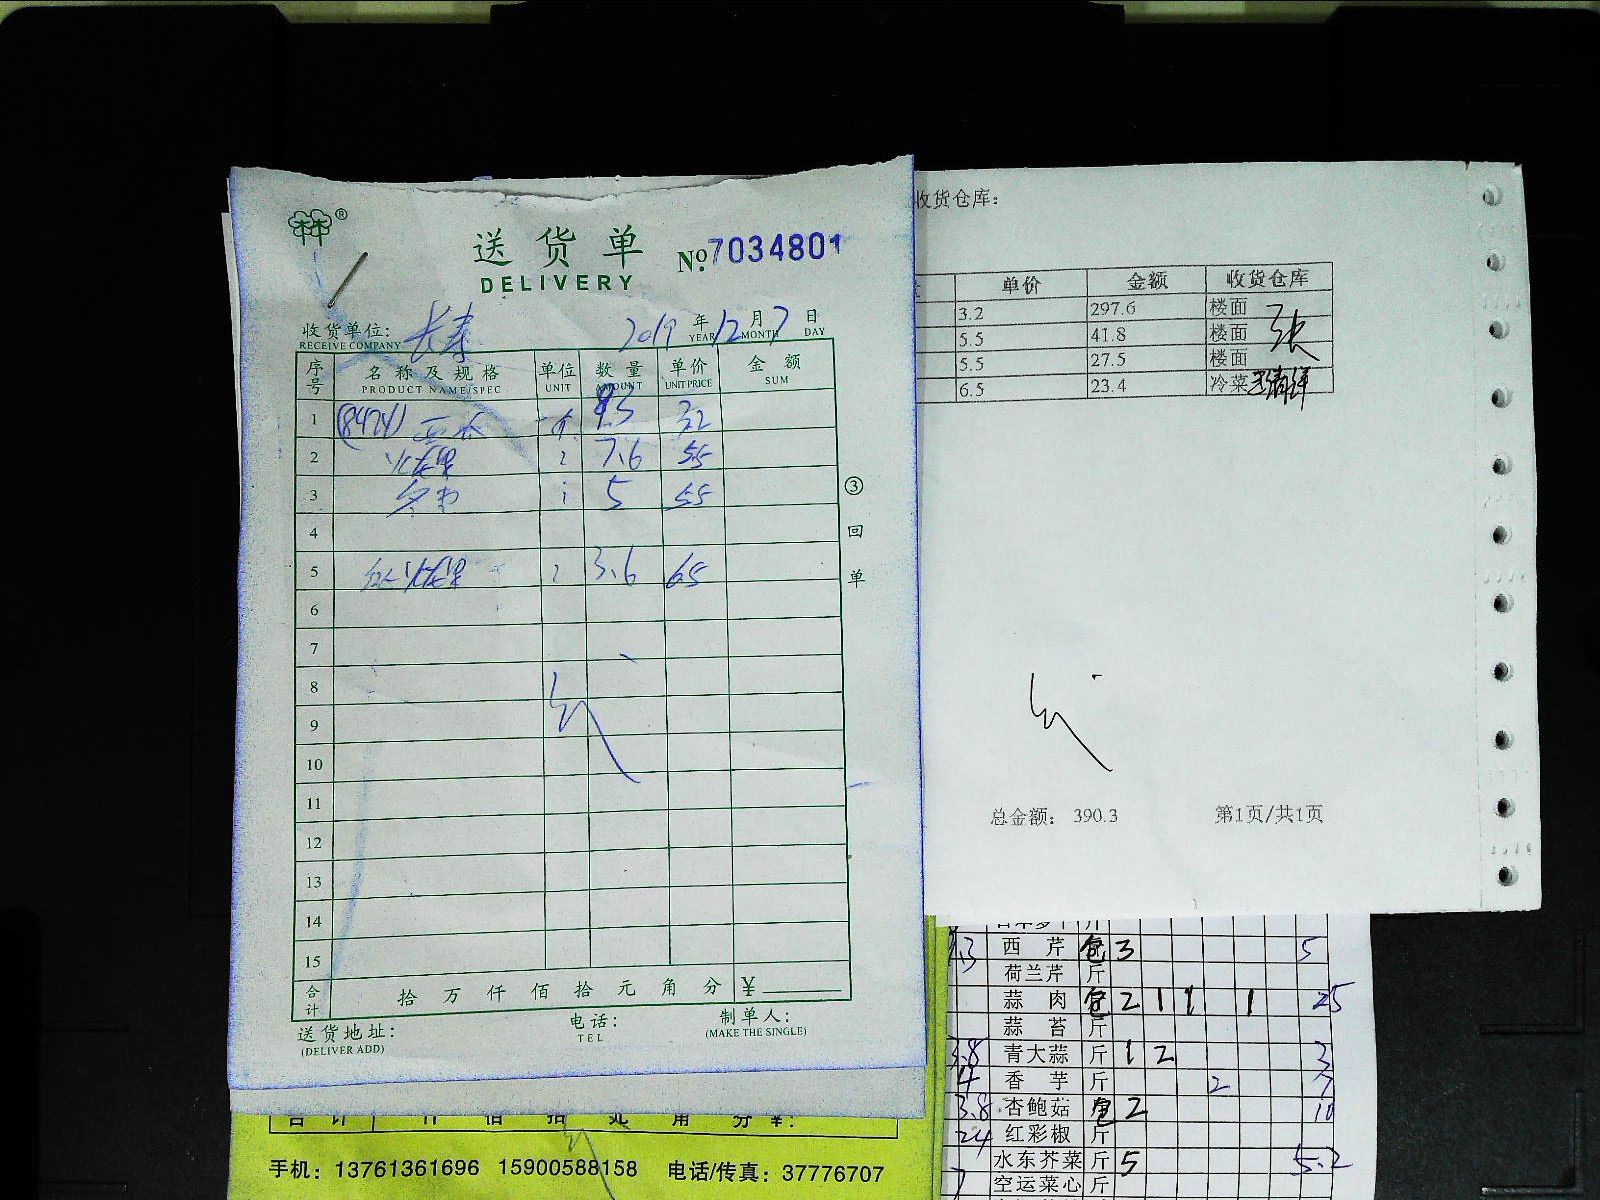 ®
送货单 №7034801
DELIVERY
收货单位: 长寿 2019 年 12 月 7 日
RECEIVE COMPANY YEAR MONTH DAY
序号 名称及规格 单位 数量 单价 金额
PRODUCT NAME/SPEC UNIT AMOUNT UNIT PRICE SUM
1 32
2 7.6 55
3 5 55
4
5 3.6 65
6
7
8
9
10
11
12
13
14
15
合计 拾 万 仟 佰 拾 元 角 分 ¥
送货地址: 电话: 制单人:
(DELIVER ADD) TEL (MAKE THE SINGLE)
③ 回 单
合 计 仟 佰 拾 元 角 分 ¥:
手机: 13761361696 15900588158 电话/传真: 37776707
收货仓库:
单价 金额 收货仓库
3.2 297.6 楼面
5.5 41.8 楼面
5.5 27.5 楼面
6.5 23.4 冷菜
总金额: 390.3 第1页/共1页
西芹 包 3 5
荷兰芹 斤
蒜肉 包 2 1 1 1 25
蒜苔 斤
3.8 青大蒜 斤 1 2 3
4 香芋 斤 2 7
3.8 杏鲍菇 包 2 10
24 红彩椒 斤
水东芥菜 斤 5 5.2
空运菜心 斤